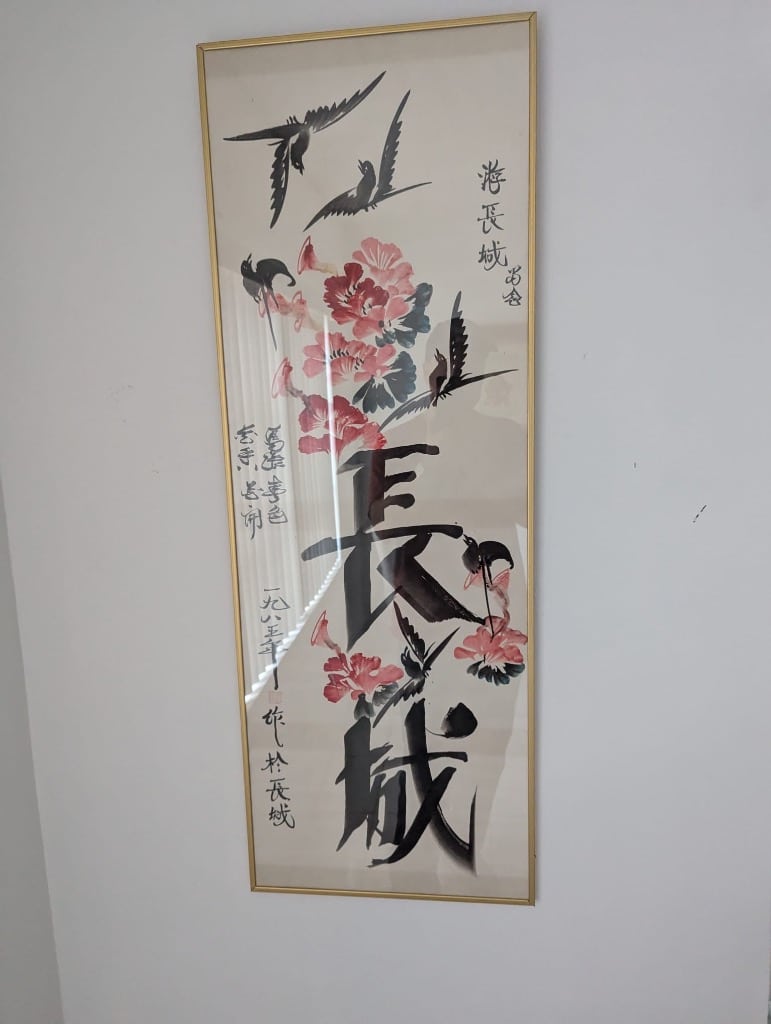 游長城
留念
長城
春色
一九八五年
作於長城